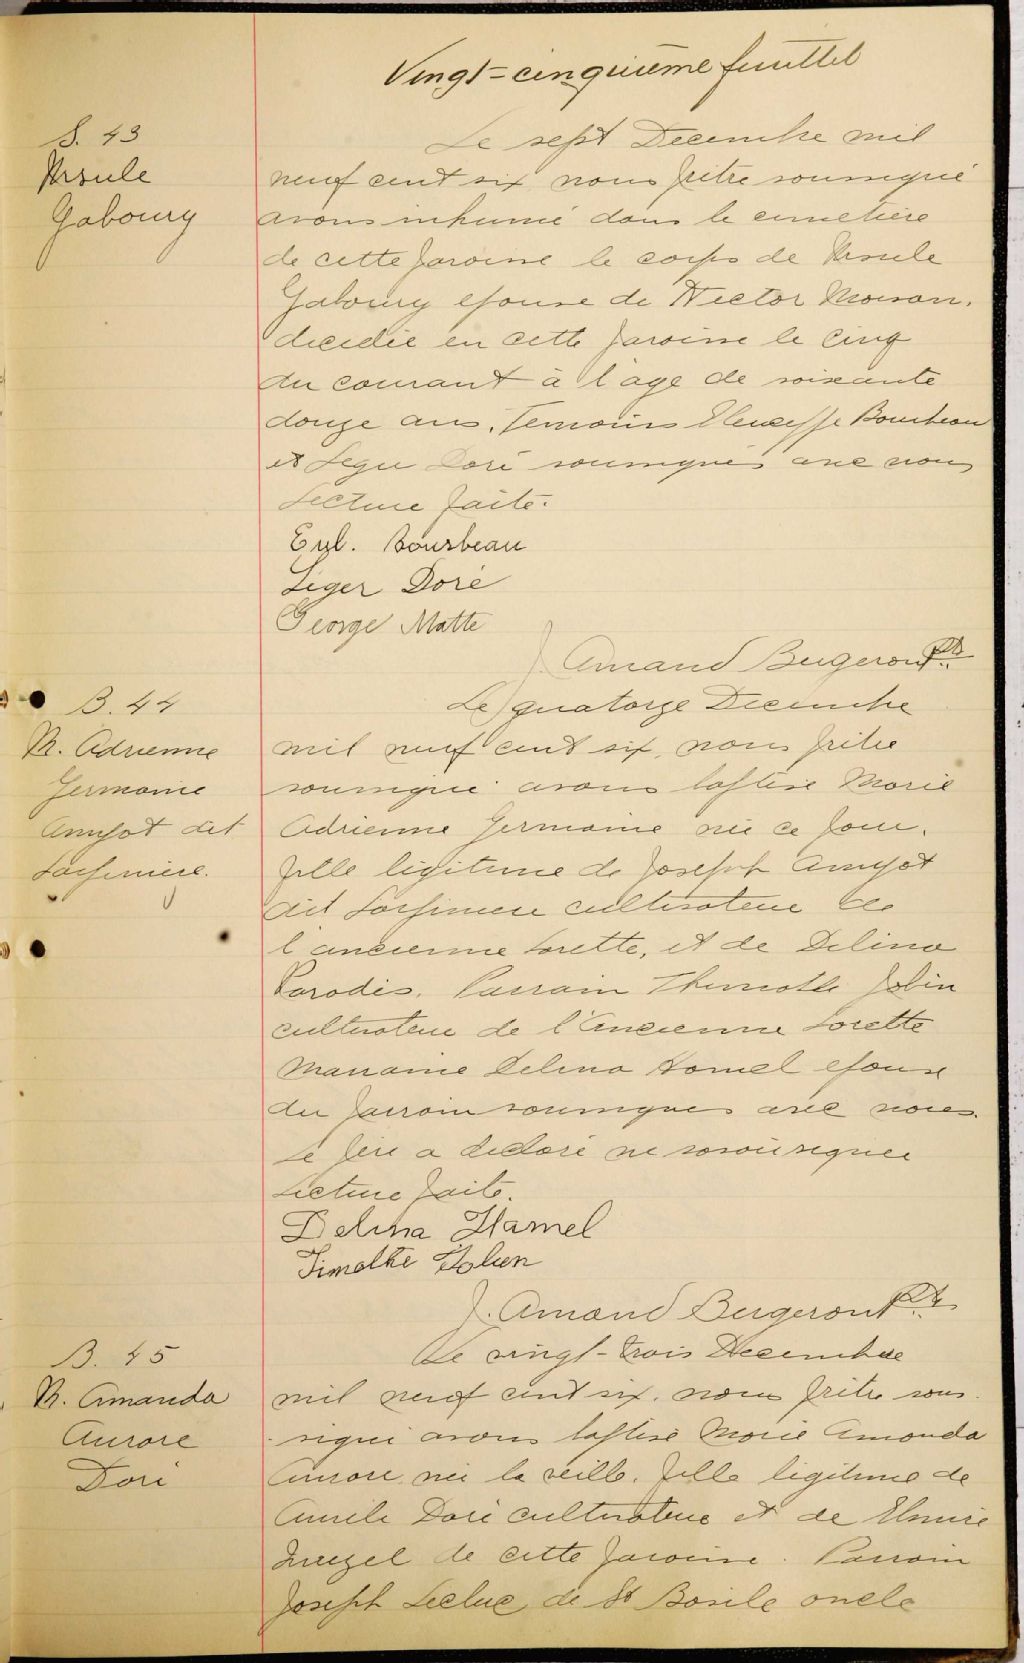 Vingt-cinquième feuillet
S. 43
Ursule
Gaboury
Le sept Decembre mil
neuf cent six, nous prêtre soussigné
avons inhumé dans le cimetière
de cette paroisse le corps de Ursule
Gaboury epouse de Nector Moisan,
decedée en cette paroisse le cinq
du courant à l'age de soixante
douze ans. Temoins Bourbeau
et Leger Doré soussignés avec nous
Lecture faite.
Eul. Bourbeau
Léger Doré
George Matte
J. Amand Bergeron Ptre
B. 44
M. Adrienne
Germaine
Amyot dit
Larpiniere.
Le quatorze Decembre
mil neuf cent six, nous prêtre
soussigné avons baptisé Marie
Adrienne Germaine née ce jour,
fille légitime de Joseph Amyot
dit Larpiniere cultivateur de
l'ancienne Lorette, et de Delina
Paradis. Parrain Thimothé Jobin
cultivateur de l'Ancienne Lorette
Marraine Delina Hamel epouse
du parrain soussignés avec nous.
Le père a déclaré ne savoir signer
Lecture faite.
Delina Hamel
Timothé
J. Amand Bergeron Ptre
B. 45
M. Amanda
Aurore
Doré
Le vingt-trois Decembre
mil neuf cent six, nous prêtre sous
signé avons baptisé Marie Amanda
Aurore née la veille, fille légitime de
Aurèle Doré cultivateur et de Elmire
de cette paroisse. Parrain
Joseph Leclerc de St Basile oncle